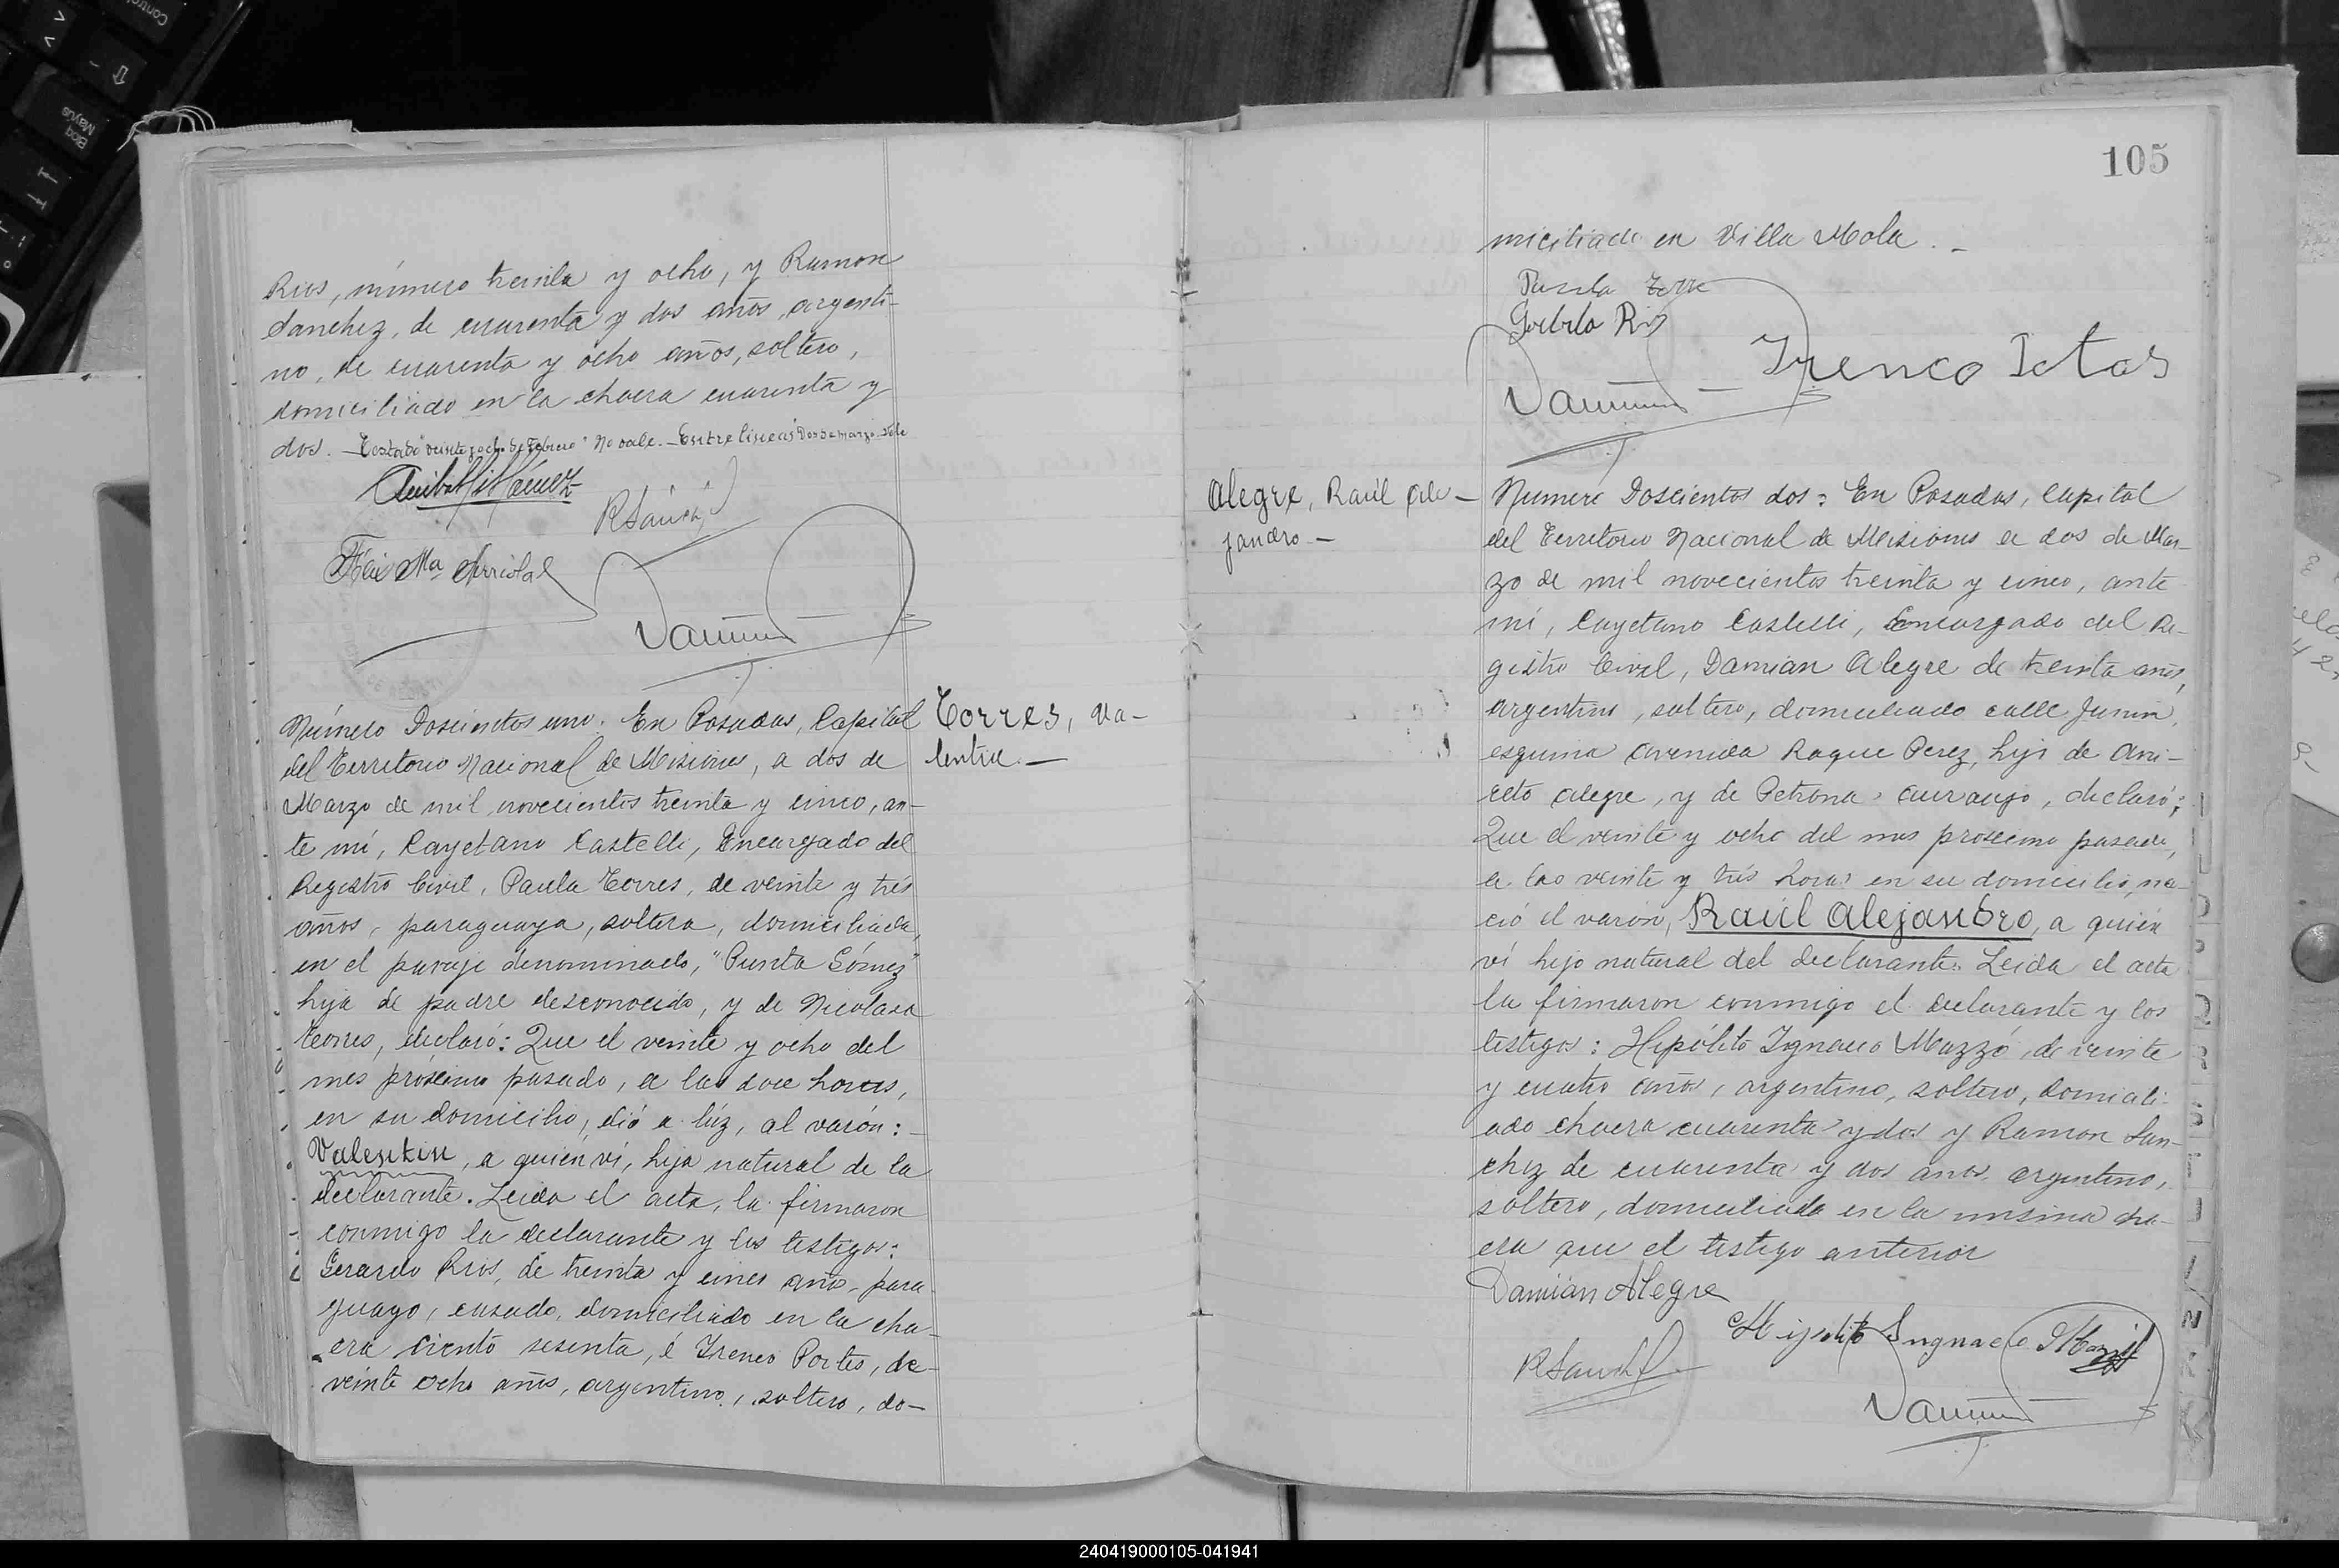 Rios, número treinta y ocho, y Ramon
Sanchez, de cuarenta y dos años, argenti-
no, de cuarenta y ocho años, soltero,
domiciliado en la chacra cuarenta y
dos. — Testado "veinte y ocho de Febrero" No vale. — Entre lineas "Dos de marzo" Vale
R Sánchez
Número Doscientos uno. En Posadas, Capital
del Territorio Nacional de Misiones, a dos de
Marzo de mil novecientos treinta y cinco, an-
te mí, Cayetano Castelli, Encargado del
Registro Civil, Paula Torres, de veinte y trés
años, paraguaya, soltera, domiciliada,
en el paraje denominado, "Punta Gómez"
hija de padre desconocido, y de Nicolasa
Torres, declaró: Que el veinte y ocho del
mes próximo pasado, a las doce horas,
en su domicilio, dió a lúz, al varón: -
Valentin, a quien ví, hijo natural de la
declarante. Leida el acta, la firmaron
conmigo la declarante y los testigos:
Gerardo Rios, de treinta y cinco años, para-
guayo, casado, domiciliado en la cha-
cra ciento sesenta, é Ireneo Portes, de
veinte ocho años, argentino, soltero, do-
Torres, Va-
lentin. —
105
miciliado en Villa Mola. -
Paula Torre
Alegre, Raúl Ale-
jandro —
Numero Doscientos dos: En Posadas, Capital
del Territorio Nacional de Misiones a dos de Mar-
zo de mil novecientos treinta y cinco, ante
mí, Cayetano Castelli, Encargado del Re-
gistro Civil, Damian Alegre de treinta años,
argentino, soltero, domiciliado calle Junin,
esquina Avenida Roque Perez, hijo de Ani-
ceto Alegre, y de Petrona, declaró:
Que el veinte y ocho del mes proximo pasado,
a las veinte y trés horas en su domicilio, na-
ció el varon, Raúl Alejandro, a quien
ví hijo natural del declarante. Leida el acta
la firmaron conmigo el declarante y los
testigos: Hipólito Ignacio Mazzó, de veinte
y cuatro años, argentino, soltero, domicili-
ado chacra cuarenta y dos y Ramon San-
chez de cuarenta y dos años, argentino,
soltero, domiciliado en la misma cha-
cra que el testigo anterior
Damián Alegre
R Sanchez
240419000105-041941